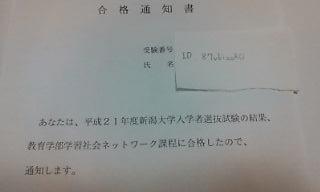 合格通知書
受験番号
氏名
ID
あなたは、平成21年度新潟大学入学者選抜試験の結果、
教育学部学習社会ネットワーク課程に合格したので、
通知します。